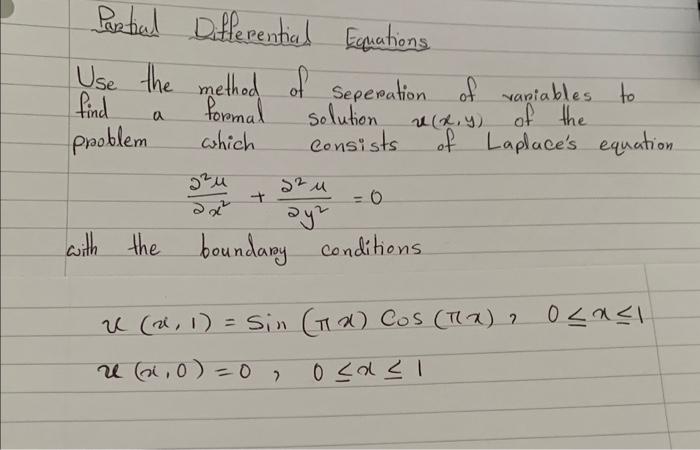 Partial Differential Equations
Use the method of seperation of variables to
find a formal solution u(x,y) of the
problem which consists of Laplace's equation
∂²u/∂x² + ∂²u/∂y² = 0
with the boundary conditions
u (x, 1) = Sin (πx) Cos (πx), 0 ≤ x ≤ 1
u (x, 0) = 0, 0 ≤ x ≤ 1